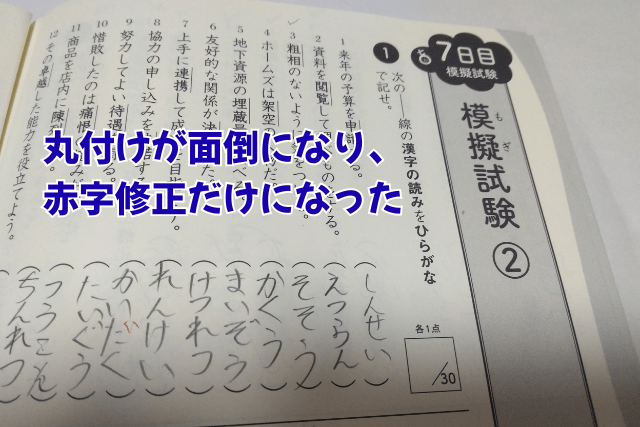 7日目
模擬試験
模擬試験
もぎ
②
1 次の――線の漢字の読みをひらがな
で記せ。
各1点
/30
1 来年の予算を申
2 資料を閲覧して
3 粗相のないよう
4 ホームズは架空の
5 地下資源の埋蔵
6 友好的な関係が決
7 上手に連携して成
8 協力の申し込みを
9 努力してよい待遇
10 惜敗したのは痛恨
11 商品を店内に陳列
12 その卓越した能力を役立てよう。
丸付けが面倒になり、
赤字修正だけになった
しんせい
えつらん
そそう
かくう
まいぞう
けつれつ
れんけい
たいぐう
つうこん
ちんれつ